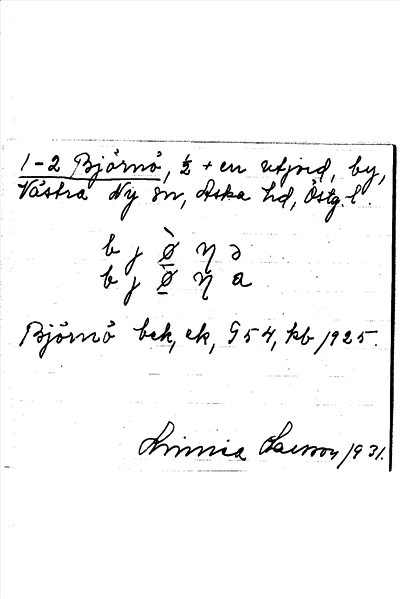 1-2 Björnö, ½ + en utjord, by,
Västra Ny sn, Aska hd, Östg. l.
b j ø̀ η ə
b j ø η a
Björnö bek, ek, G54, kb 1925.
Linnea Larsson 1931.